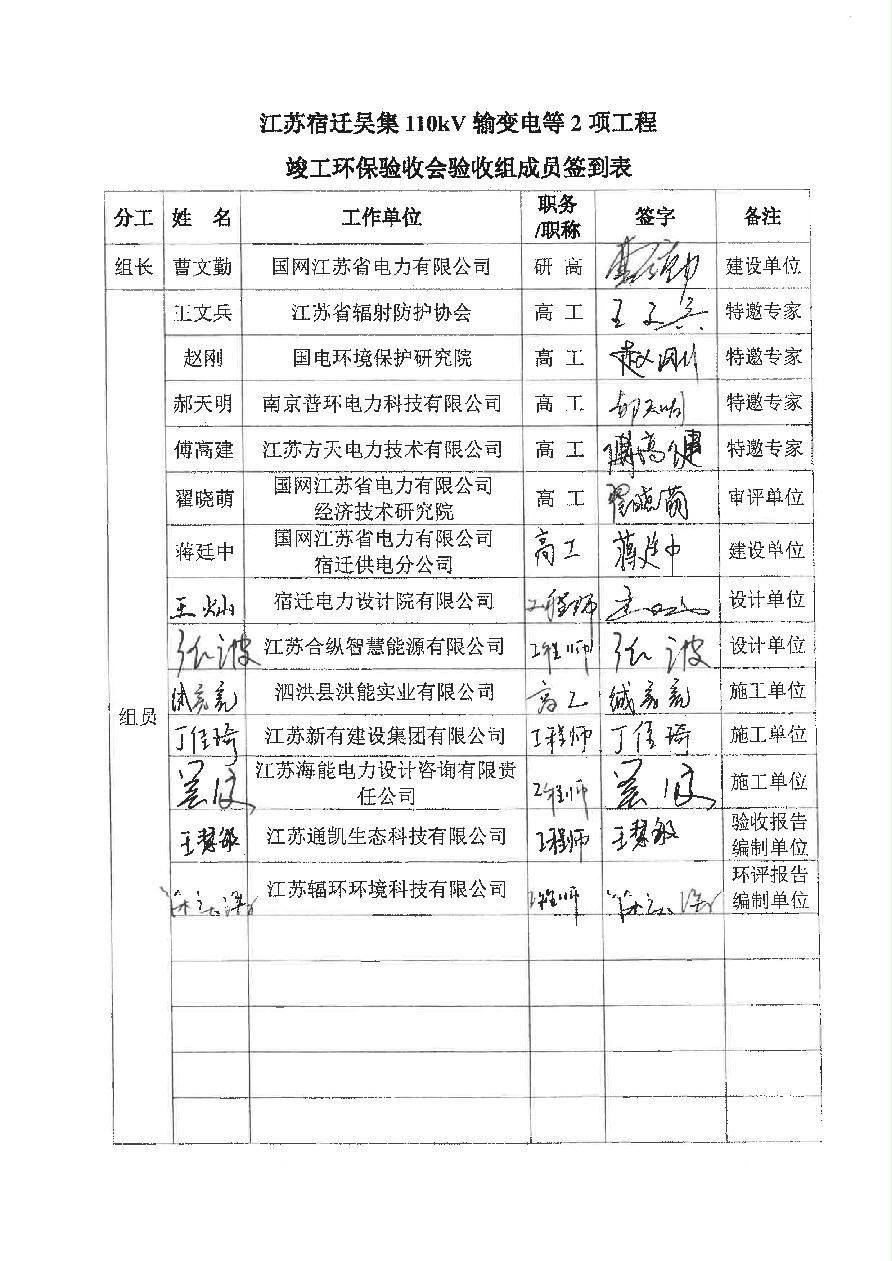 江苏宿迁吴集 110kV 输变电等 2 项工程
竣工环保验收会验收组成员签到表
分工 姓 名 工作单位 职务/职称 签字 备注
组长 曹文勤 国网江苏省电力有限公司 研 高 曹文勤 建设单位
组员
王文兵 江苏省辐射防护协会 高 工 王文兵 特邀专家
赵刚 国电环境保护研究院 高 工 赵刚 特邀专家
郝天明 南京普环电力科技有限公司 高 工 郝天明 特邀专家
傅高建 江苏方天电力技术有限公司 高 工 傅高健 特邀专家
翟晓萌 国网江苏省电力有限公司 高 工 翟晓萌 审评单位
经济技术研究院
蒋廷中 国网江苏省电力有限公司 高工 蒋廷中 建设单位
宿迁供电分公司
王灿 宿迁电力设计院有限公司 工程师 设计单位
张波 江苏合纵智慧能源有限公司 工程师 张波 设计单位
泗洪县洪能实业有限公司 高工 施工单位
丁佳琦 江苏新有建设集团有限公司 工程师 丁佳琦 施工单位
江苏海能电力设计咨询有限责 工程师 施工单位
任公司
王慧敏 江苏通凯生态科技有限公司 工程师 王慧敏 验收报告
编制单位
江苏辐环环境科技有限公司 工程师 环评报告
编制单位